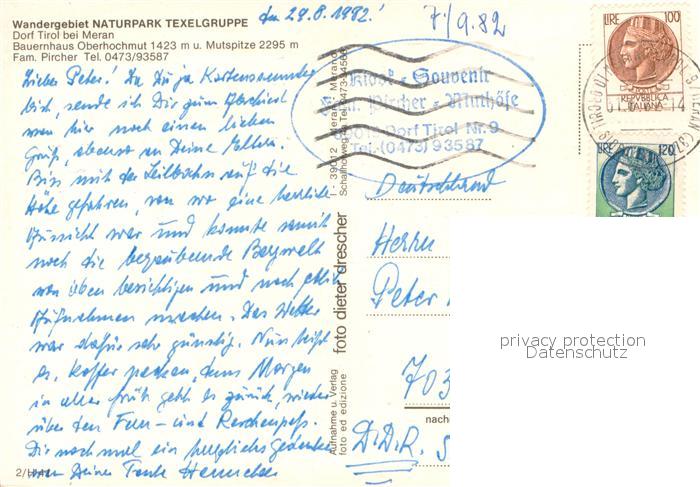 Wandergebiet NATURPARK TEXELGRUPPE
Dorf Tirol bei Meran
Bauernhaus Oberhochmut 1423 m u. Mutspitze 2295 m
Fam. Pircher Tel. 0473/93587
den 29.8.1982!
7/9.82
LIRE 100
REPVBBLICA
ITALIANA
LIRE 120
Kiosk - Souvenir
Fam. Pircher - Muthöfe
39019 Dorf Tirol Nr. 9
Tel. (0473) 93587
Lieber Peter! Da Du ja Kartensammler
bist, sende ich Dir zum Abschied
von hier noch einen lieben
Gruß, ebenso an Deine Eltern.
Bin mit der Seilbahn auf die
Höhe gefahren, von wo eine herrliche
Aussicht war und konnte somit
noch die bezaubernde Bergwelt
von oben besichtigen und noch
Aufnahmen machen. Das Wetter
war dafür sehr günstig. Nun heißt
es, Koffer packen, denn Morgen
in aller früh geht es zurück, wieder
über den und Reschenpaß.
Dir noch mal ein herzliches Gedenken
von Deiner Tante
2/
I - 39012 Meran - Merano
Schaffnerweg Tel. 0473-
foto dieter drescher
Aufnahme u. Verlag
foto ed edizione
Deutschland
Herrn
Peter
703
nache
D.D.R.
privacy protection
Datenschutz